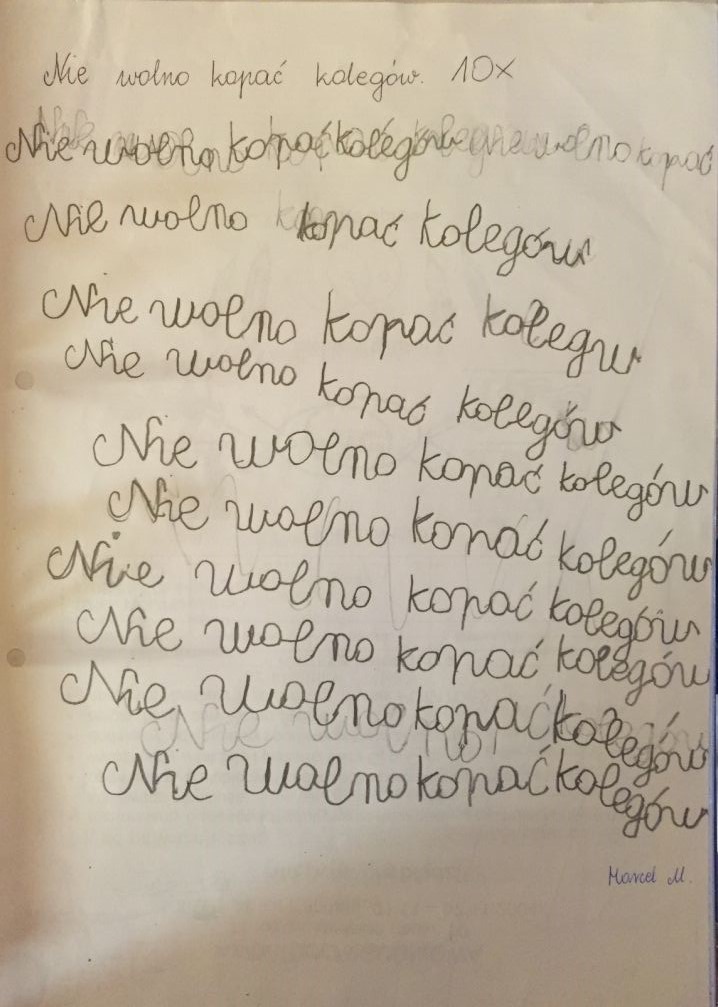 Nie wolno kopać kolegów. 10x
Nie wolno kopać kolegów wolno kopać
Nie wolno kopać kolegów
Nie wolno kopać kolegw
Nie wolno kopać kolegów
Nie wolno kopać kolegów
Nie wolno kopać kolegów
Nie wolno kopać kolegów
Nie wolno kopać kolegów
Nie wolno kopać kolegów
Nie wolno kopać kolegów
Marcel M.